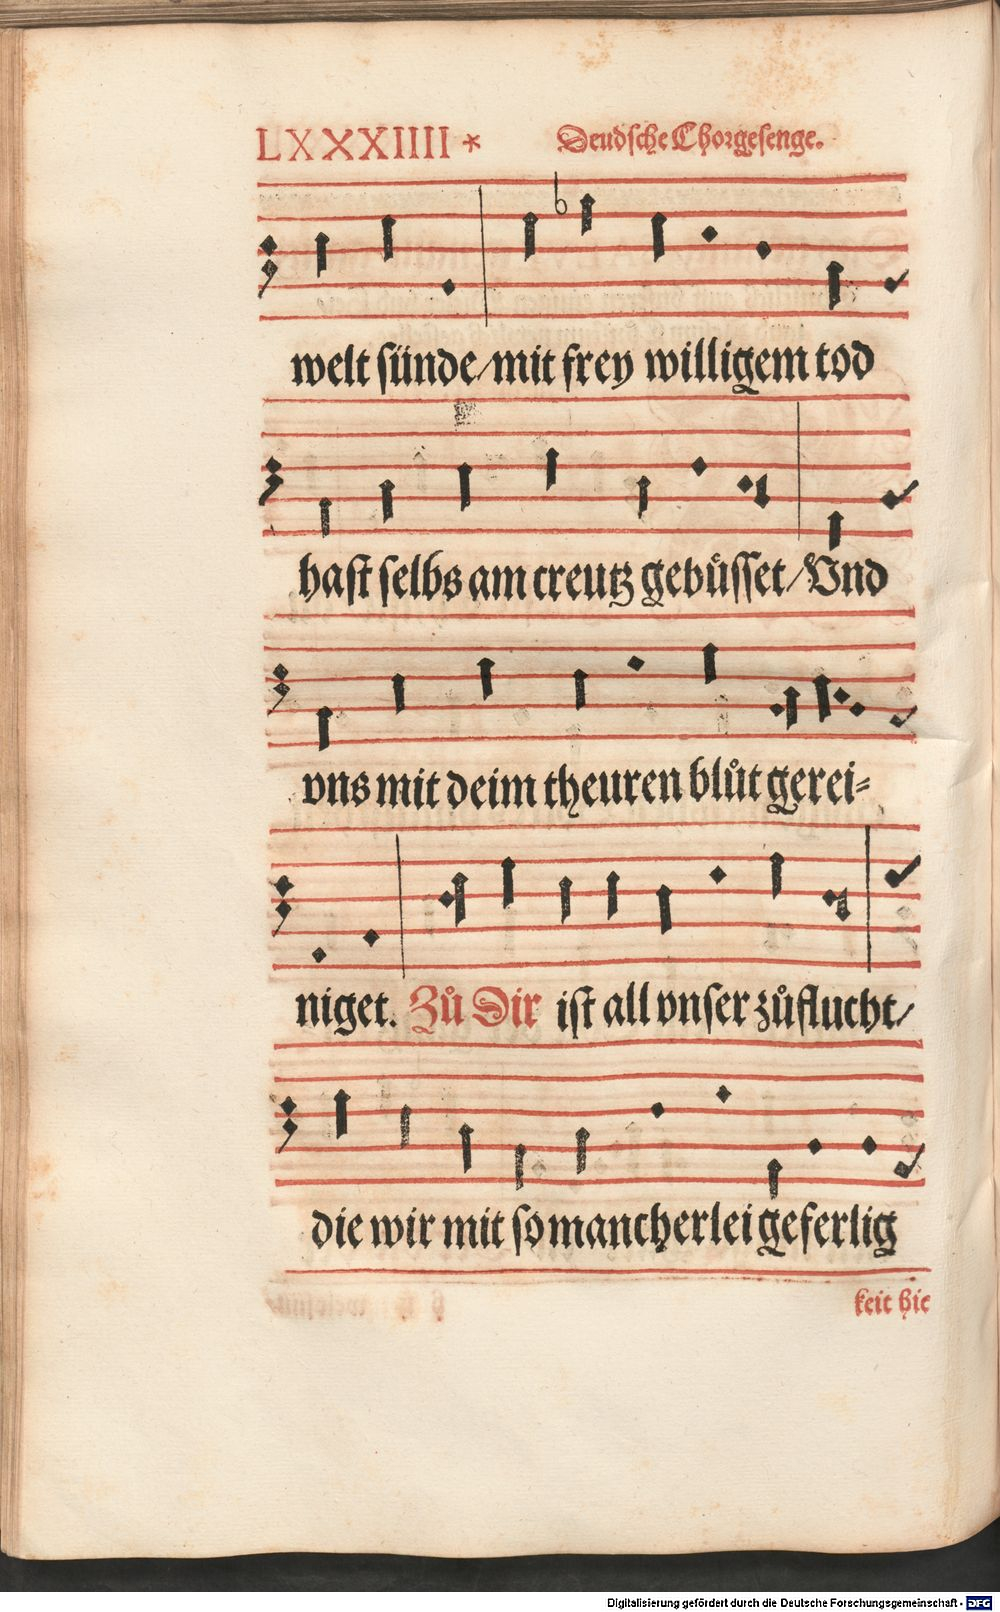 LXXXIIII * Deudsche Chorgesenge.
welt sünde/mit frey willigem tod
hast selbs am creutz gebüsset/Vnd
vns mit deim theuren blůt gerei=
niget. Zů Dir ist all vnser zůflucht/
die wir mit so mancherlei geferlig
keit hie
Digitalisierung gefördert durch die Deutsche Forschungsgemeinschaft - DFG